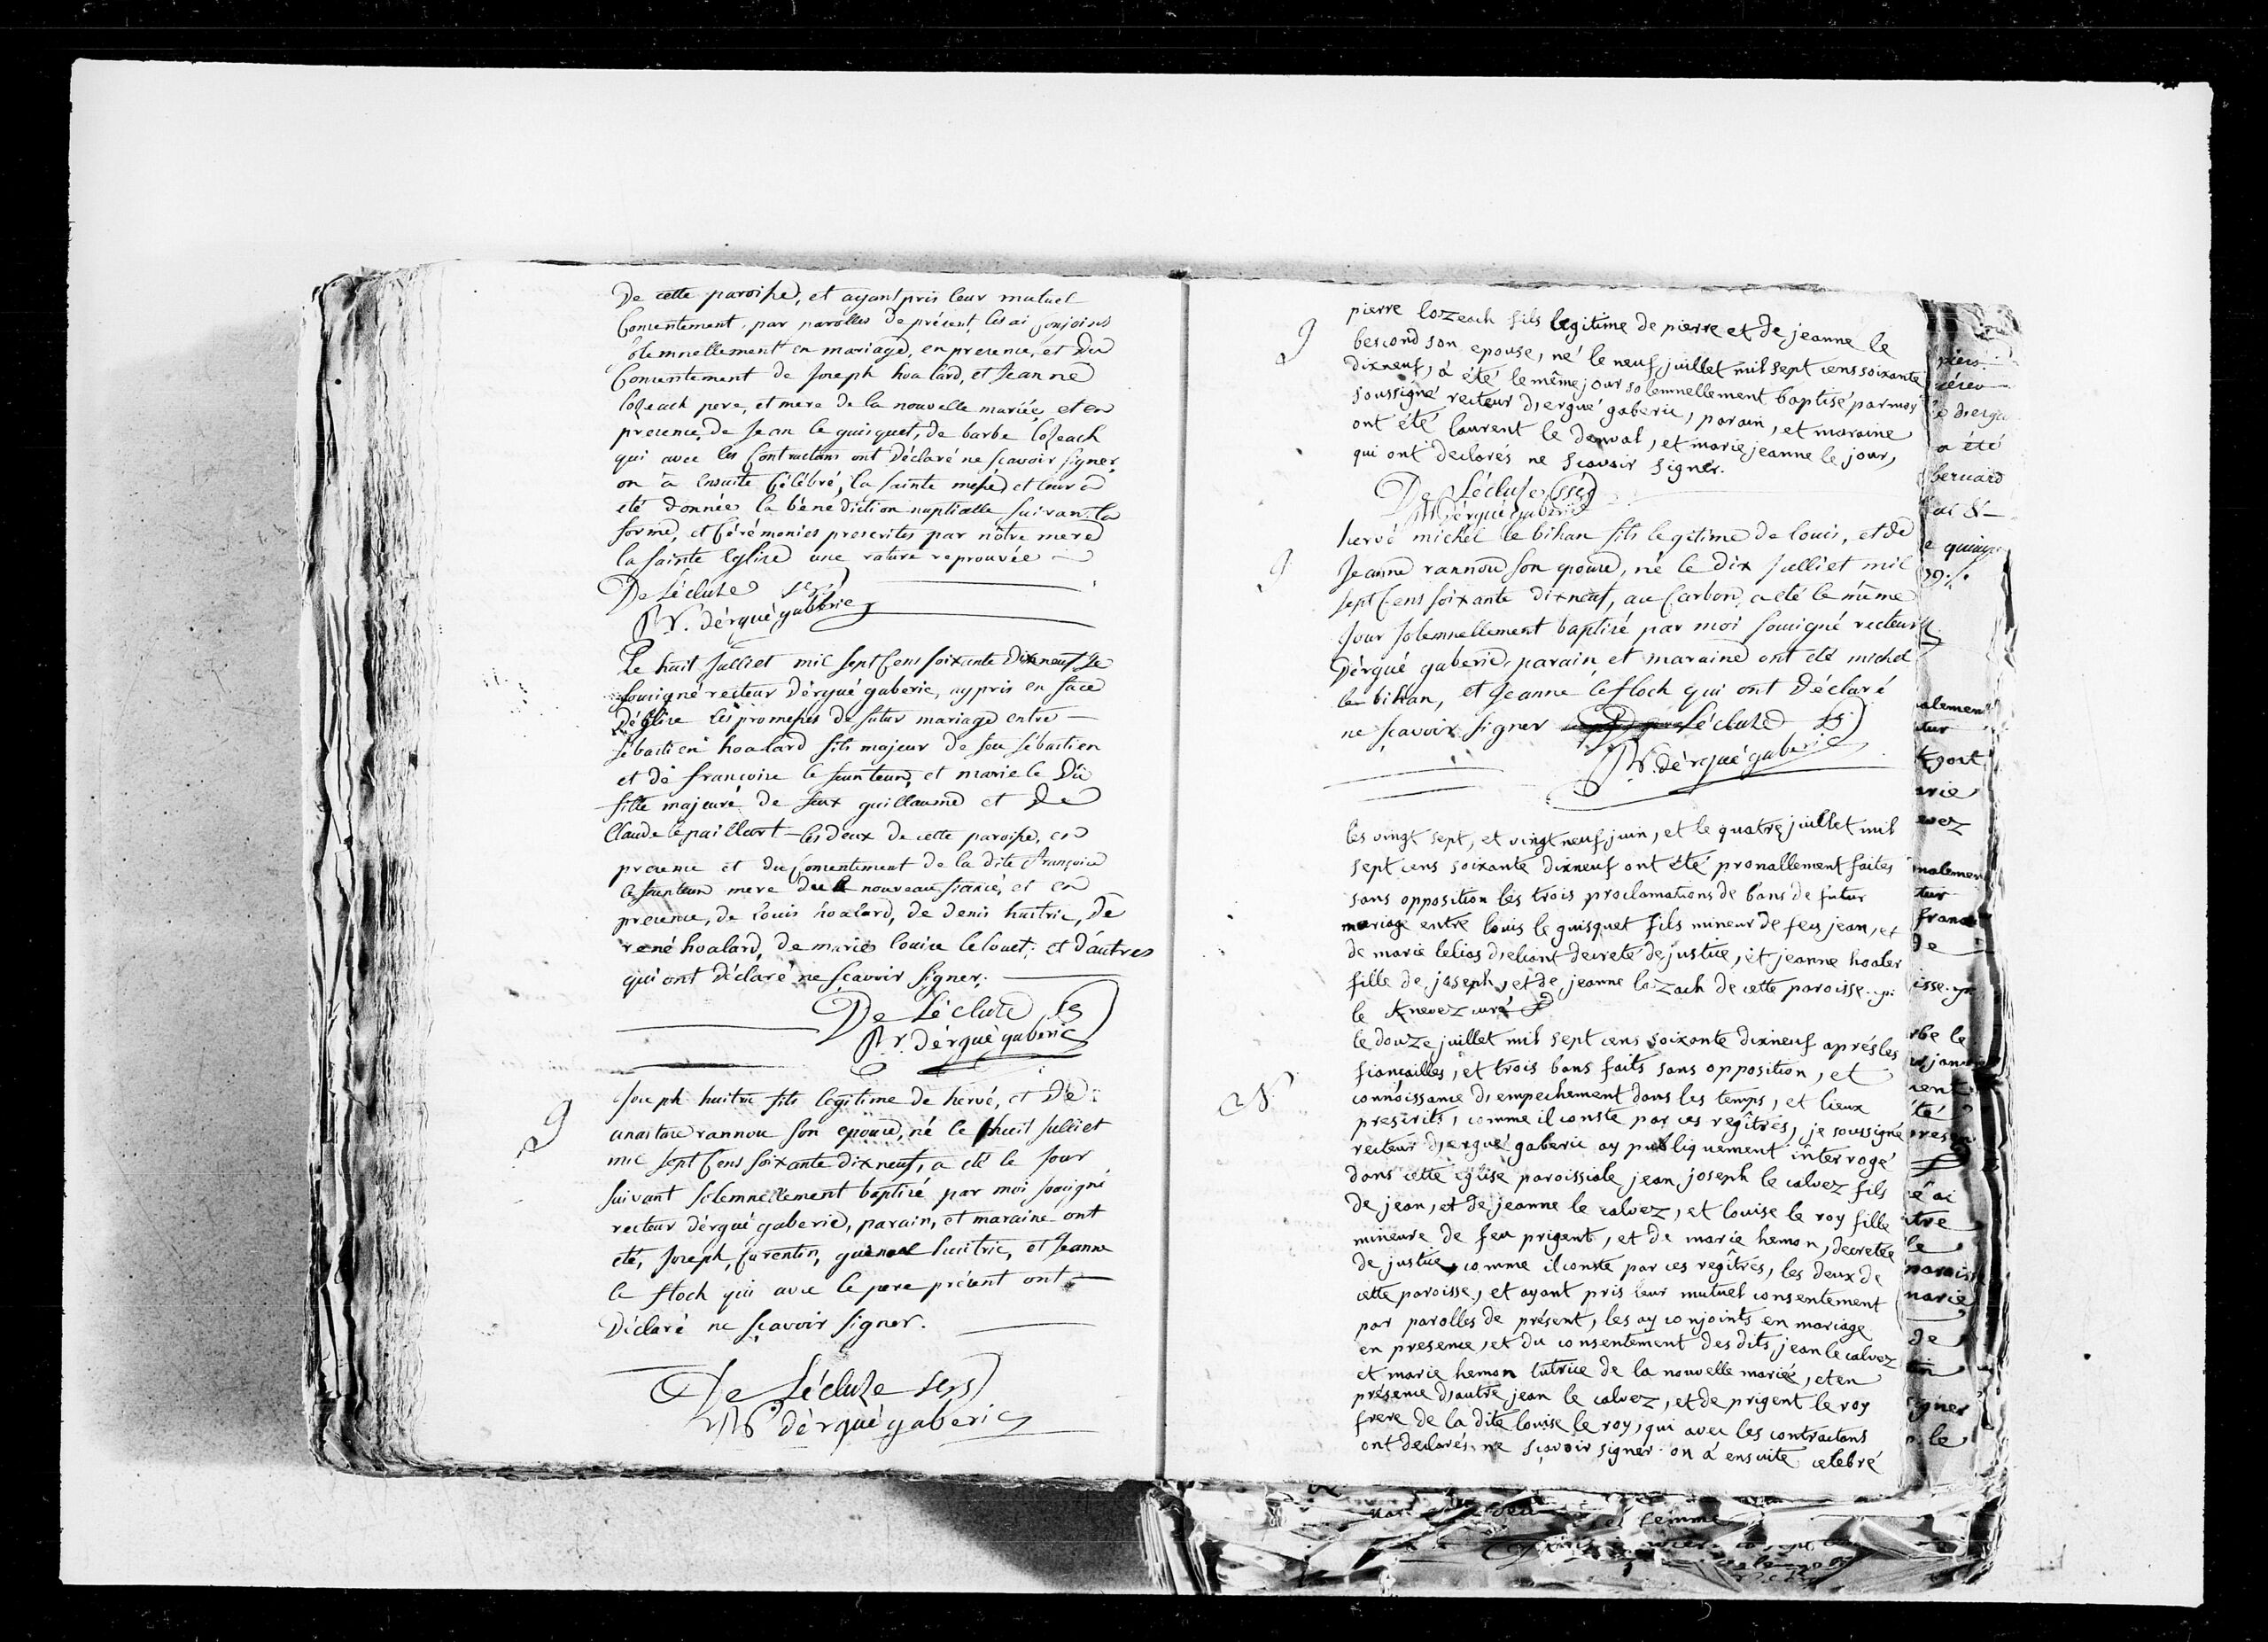 De cette paroisse, et ayant pris leur mutuel
Consentement par parolles de présent, les ai conjoints
solemnellement en mariage, en presence, et du
Consentement de Joseph hoalard, et Jeanne
lozeach pere, et mere de la nouvelle mariée, et en
presence, de Jean le guisquet, de barbe lozeach
qui avec les Contractans ont déclaré ne sçavoir signer.
on a ensuite Célébré, la sainte messe, et leur a
eté donnée la bénédiction nuptialle suivant la
forme, et Cérémonies prescrites par nôtre mere
la sainte Eglise une rature reprouvée
De Lécluze
Rr. dérgué gaberic
Le huit Julliet mil sept Cens soixante dixneuf Je
sousigné recteur dérgué gaberic, ay pris en face
dEglise les promesses de futur mariage entre
sébastien hoalard fils majeur de feu sébastien
et de françoise le feunteun, et marie le Du
fille majeure de feux guillaume et de
Claude le paillart les deux de cette paroisse, en
presence et du Consentement de la dite françoise
le feunteun mere du nouveau fiancé, et en
presence, de louis hoalard, de denis huitric, de
rené hoalard, de marie louise le louet, et d'autres
qui ont déclaré ne sçavoir signer.
De Lécluze
Rr. dérgué gaberic
Joseph huitric fils legitime de hervé, et de
anastase rannou son epouse, né le huit Julliet
mil sept Cens soixante dixneuf, a eté le Jour
suivant solemnellement baptisé par moi sousigné
recteur dérgué gaberic, parain, et maraine ont
eté, Joseph, Corentin, guenael huitric, et Jeanne
le floch qui avec le pere présent ont
Déclaré ne sçavoir signer.
De Lécluze
Rr dérgué gaberic
pierre lozeach fils legitime de pierre et de jeanne le
bescond son epouse, né le neuf juillet mil sept cens soixante
dixneuf, a été le même jour solemnellement baptisé par moy
soussigné recteur d'ergué gaberic, parain, et maraine
ont été laurent le denval, et marie jeanne le jour,
qui ont declarés ne scavoir signer.
De Lécluze
Rr dérgué gaberic
hervé michel le bihan fils legitime de louis, et de
Jeanne rannou son epouse, né le dix Julliet mil
sept Cens soixante dixneuf, au Carbon, a eté le même
Jour solemnellement baptisé par moi sousigné recteur
Dérgué gaberic, parain et maraine ont eté michel
le bihan, et Jeanne le floch qui ont Déclaré
ne sçavoir signer Lécluze
Rr. dérgué gaberic
les vingt sept, et vingt neuf juin, et le quatre juillet mil
sept cens soixante dixneuf ont été pronallement faites
sans opposition les trois proclamations de bans de futur
mariage entre louis le guisquet fils mineur de feu jean, et
de marie lelias d'eliant decreté de justice, et jeanne hoaler
fille de joseph, et de jeanne lozach de cette paroisse.
le Knevez curé
le douze juillet mil sept cens soixante dixneuf aprés les
fiançailles, et trois bans faits sans opposition, et
connoissance d'empechement dans les temps, et lieux
prescrits, comme il conste par ces regîtrés, je soussigné
recteur d'ergué gaberic ay publiquement interrogé
dans cette eglise paroissiale jean joseph le calvez fils
de jean, et de jeanne le calvez, et louise le roy fille
mineure de feu prigent, et de marie hemon, decretée
de justice, comme il conste par ces regîtrés, les deux de
cette paroisse, et ayant pris leur mutuel consentement
par parolles de présent, les ay conjoints en mariage
en presence, et du consentement des dits jean le calvez
et marie hemon tutrice de la nouvelle mariée, et en
présence d'autre jean le calvez, et de prigent le roy
frere de la dite louise le roy, qui avec les contractans
ont declarés ne sçavoir signer. on a ensuite celebré